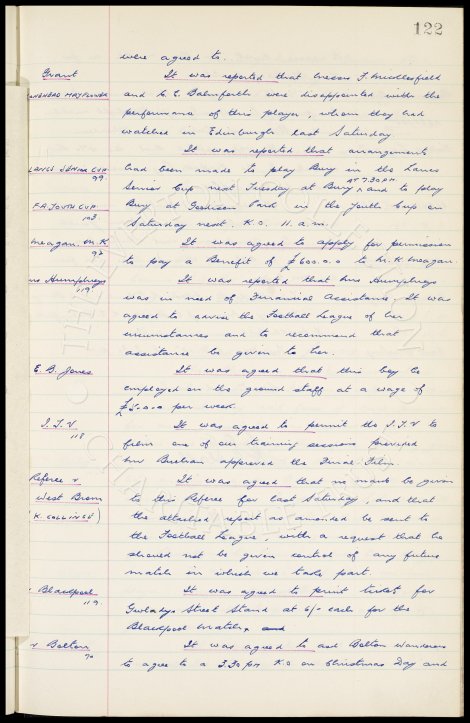 122
were agreed to.
Grant It was reported that Messrs F. Micklesfield
and C. E. Balmforth were disappointed with the
MAYFLOWER performance of this player, whom they had
watched in Edinburgh last Saturday
It was reported that arrangements
LANCS SENIOR CUP had been made to play Bury in the Lancs
99 Senior Cup next Tuesday at Bury AT 7.30 PM and to play
F.A. YOUTH CUP Bury at Goodison Park in the Youth Cup on
103 Saturday next. K.O. 11 a.m.
Meagan. M. K It was agreed to apply for permission
92 to pay a Benefit of £600.0.0 to M. K Meagan
Mrs Humphreys It was reported that Mrs Humphreys
119 was in need of Financial Assistance. It was
agreed to advise the Football League of her
circumstances and to recommend that
assistance be given to her.
E. B. Jones It was agreed that this boy be
employed on the ground staff at a wage of
£5.0.0 per week.
I. T. V It was agreed to permit the I.T.V to
118 film one of our training sessions provided
Mr Buchan approved the Final Film.
Referee v It was agreed that no mark be given
West Brom to this Referee for last Saturday, and that
(K. COLLINGE) the attached report as amended be sent to
the Football League, with a request that he
should not be given control of any future
match in which we take part
v Blackpool It was agreed to print tickets for
119 Gwladys Street Stand at 6/- each for the
Blackpool match, and
v Bolton It was agreed to ask Bolton Wanderers
70 to agree to a 2.30 pm K.O on Christmas Day and